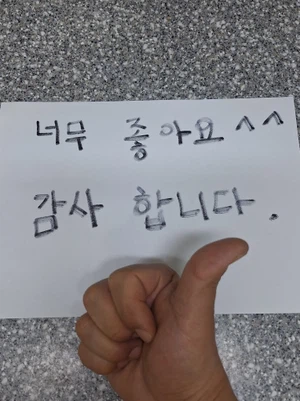 너무 좋아요^^
감사 합니다.